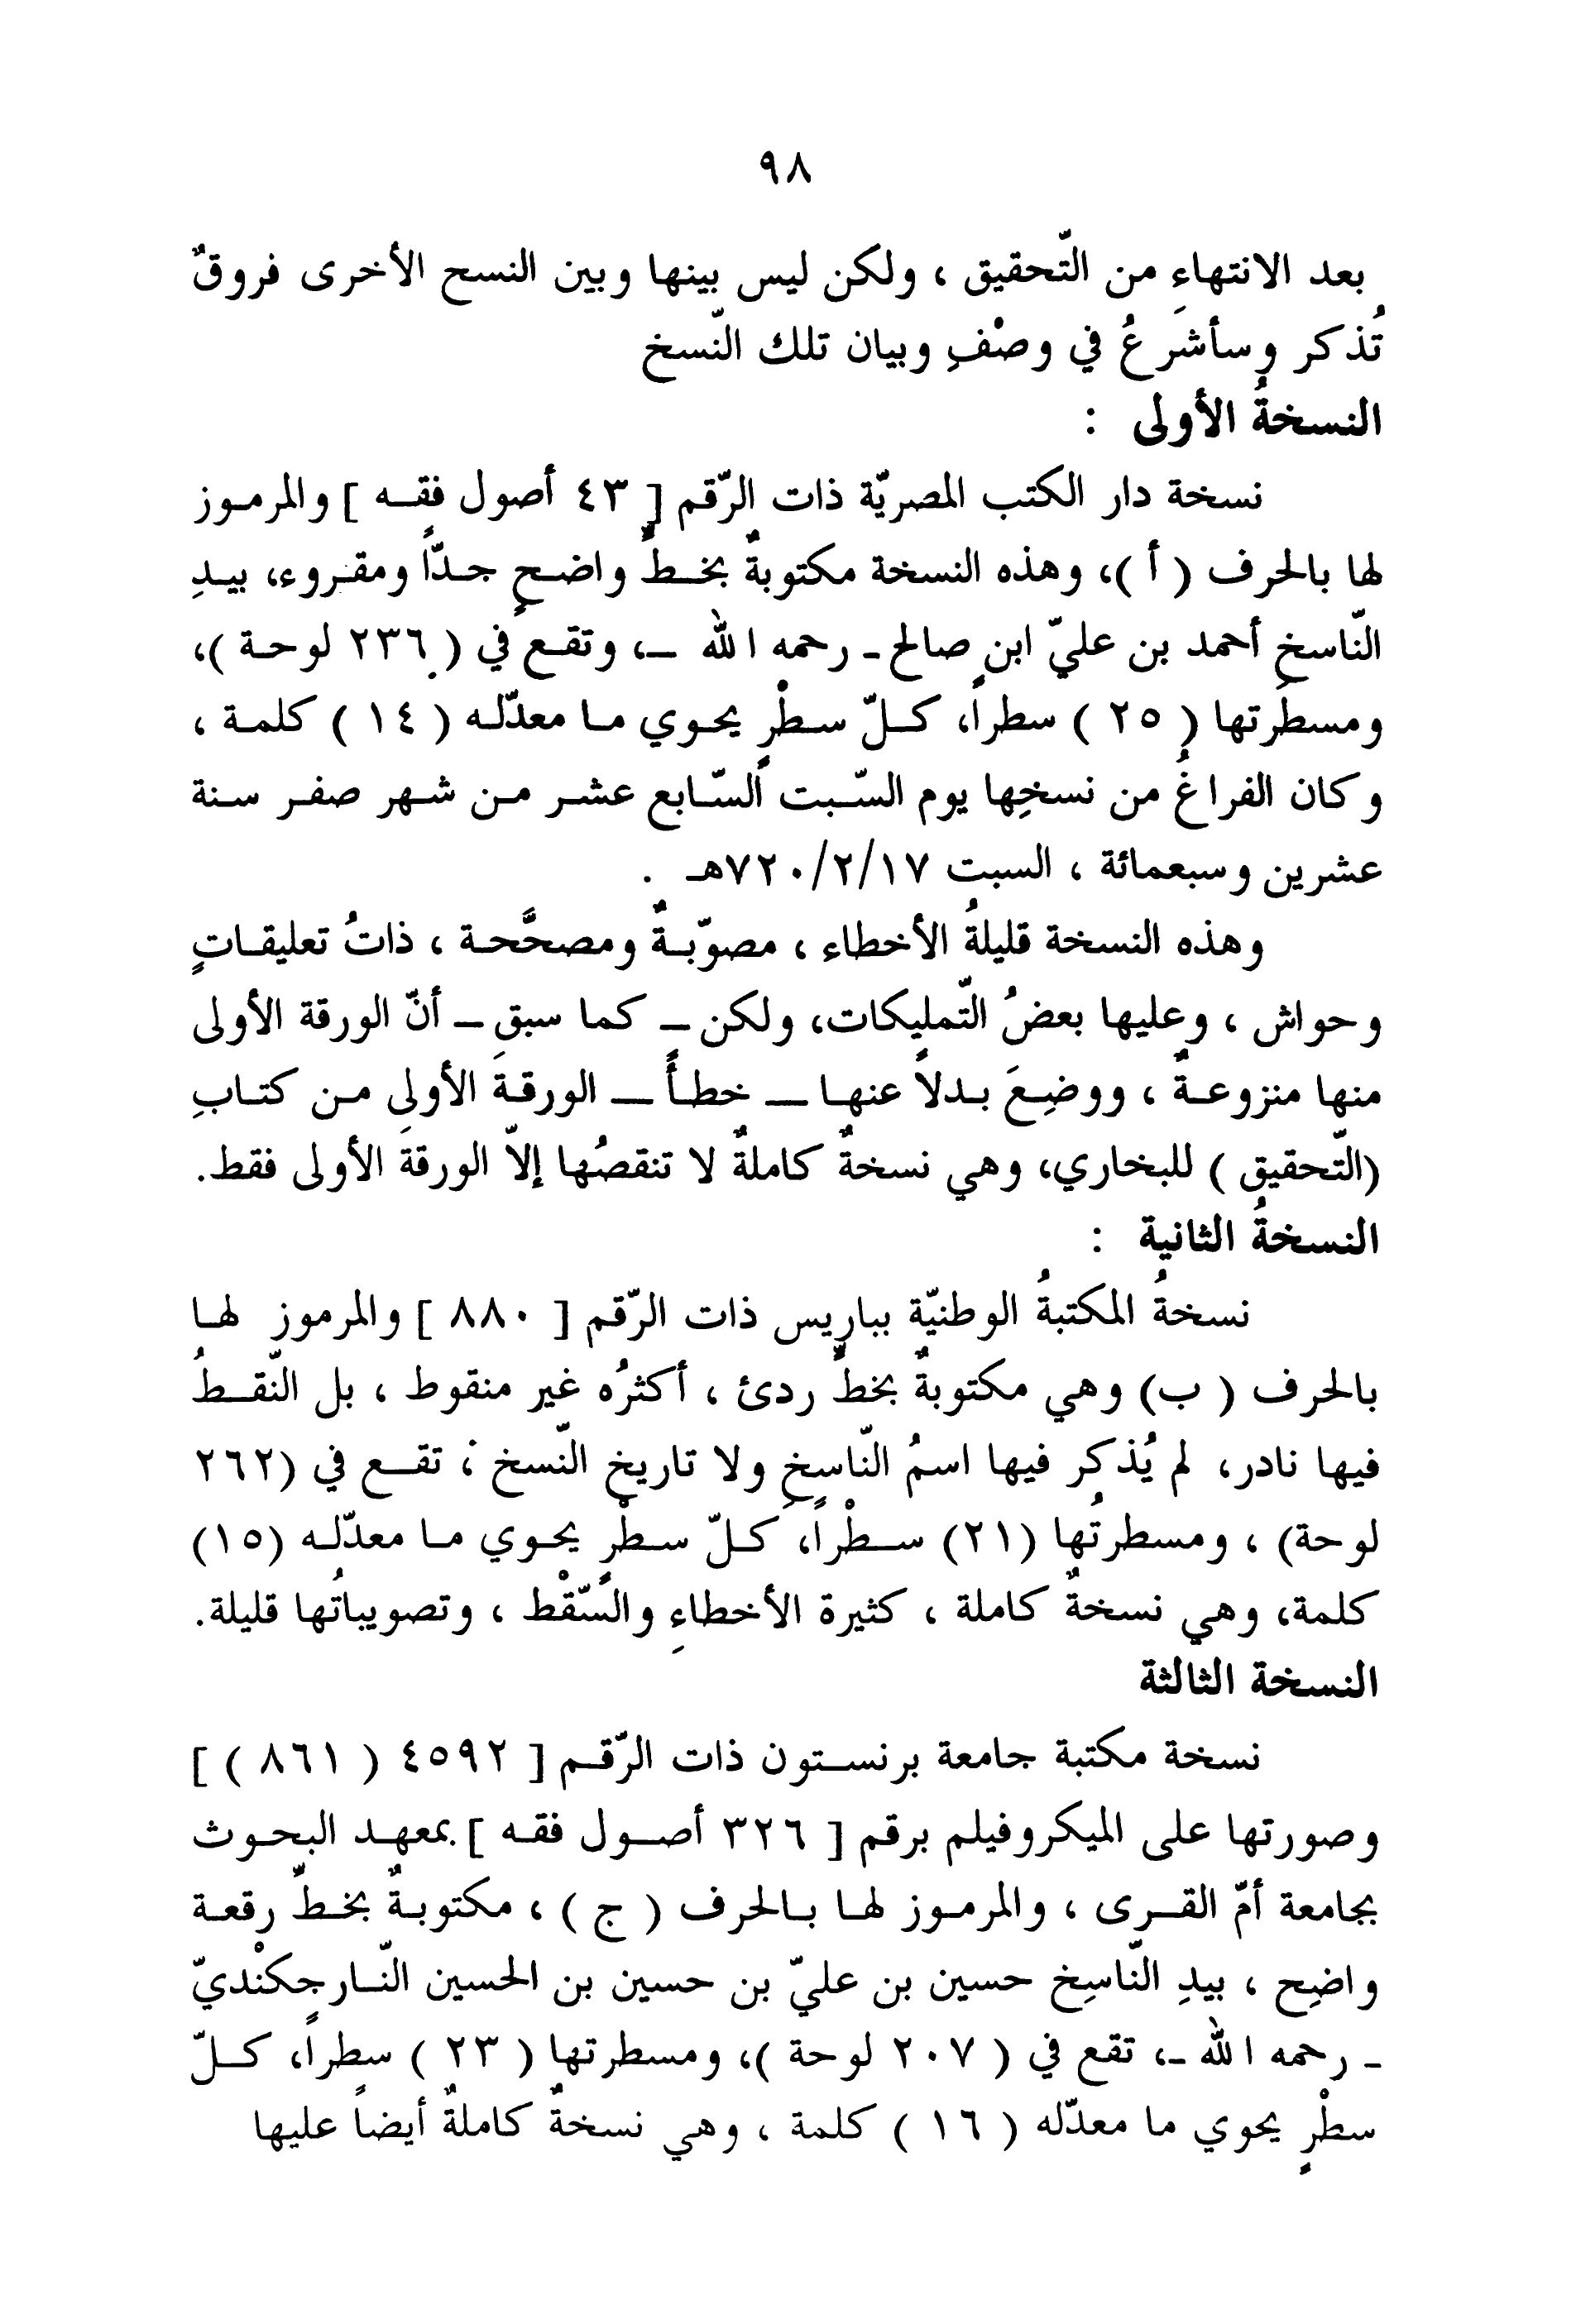 ٩٨
بعد الانتهاءِ من التّحقيق ، ولكن ليس بينها وبين النسح الأخرى فروقٌ
تُذكر وسأشرَعُ في وصْفِ وبيان تلك النّسخ
النسخةُ الأولى :
نسخة دار الكتب المصريّة ذات الرّقم [ ٤٣ أصول فقـه ] والمرمـوز
لها بالحرف ( أ )، وهذه النسخة مكتوبةٌ بخـطٍّ واضـحٍ جـدّاً ومقـروء، بيـدِ
النّاسخِ أحمد بن عليّ ابن صالح - رحمه الله -، وتقـع في ( ٢٣٦ لوحـة )،
ومسطَرتها ( ٢٥ ) سطراً، كـلّ سـطْرٍ يحـوي مـا معدّلـه ( ١٤ ) كلمـة ،
وكان الفراغُ من نسخِها يوم السّـبت السّـابع عشـر مـن شـهر صفـر سـنة
عشرين وسبعمائة ، السبت ٧٢٠/٢/١٧هـ .
وهذه النسخة قليلةُ الأخطاء ، مصوّبـةٌ ومصحَّحـة ، ذاتُ تعليقـاتٍ
وحواش ، وعليها بعضُ التّمليكات، ولكن - كما سبق - أنّ الورقة الأولى
منها منزوعـةٌ ، ووضِـعَ بـدلاً عنهـا - خطـأً - الورقـةَ الأولى مـن كتـابِ
(التّحقيق ) للبخاري، وهي نسخةٌ كاملةٌ لا تنقصُها إلاّ الورقةَ الأولى فقط.
النسخةُ الثانية :
نسخةُ المكتبةُ الوطنيّة بباريس ذات الرّقم [ ٨٨٠ ] والمرموز لهـا
بالحرف ( ب) وهي مكتوبةٌ بخطٍّ ردئ ، أكثرُه غير منقوط ، بل النّقـطُ
فيها نادر، لم يُذكر فيها اسمُ النّاسخِ ولا تاريخ النّسخ ; تقـع في (٢٦٢
لوحة) ، ومسطرتُها (٢١) سـطْراً، كـلّ سـطْرٍ يحـوي مـا معدّلـه (١٥)
كلمة، وهي نسخةٌ كاملة ، كثيرة الأخطاءِ والسّقْط ، وتصويباتُها قليلة.
النسخة الثالثة
نسخة مكتبة جامعة برنسـتون ذات الرّقـم [ ٤٥٩٢ ( ٨٦١ ) ]
وصورتها على الميكروفيلم برقم [ ٣٢٦ أصـول فقـه ] بمعهـد البحـوث
بجامعة أمّ القـرى ، والمرمـوز لهـا بـالحرف ( ج ) ، مكتوبـةٌ بخـطّ رقعـة
واضِح ، بيدِ النّاسِخ حسين بن عليّ بن حسين بن الحسين النّـارجكنْديّ
- رحمه الله -، تقع في ( ٢٠٧ لوحة )، ومسطرتها ( ٢٣ ) سطراً، كـلّ
سطْرٍ يحوي ما معدّله ( ١٦ ) كلمة ، وهي نسخةٌ كاملةٌ أيضاً عليها